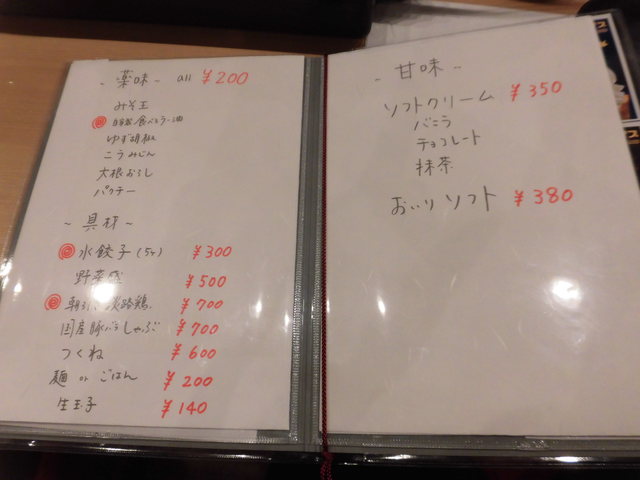 ~ 薬味 ~ all ¥200
みそ玉
自家製 食べるラー油
ゆず胡椒
こうみじん
大根おろし
パクチー
~ 具材 ~
水餃子 (5ヶ) ¥300
野菜盛 ¥500
朝引き 淡路鶏 ¥700
国産豚バラしゃぶ ¥700
つくね ¥600
麺 or ごはん ¥200
生玉子 ¥140
- 甘味 -
ソフトクリーム ¥350
バニラ
チョコレート
抹茶
おいり ソフト ¥380